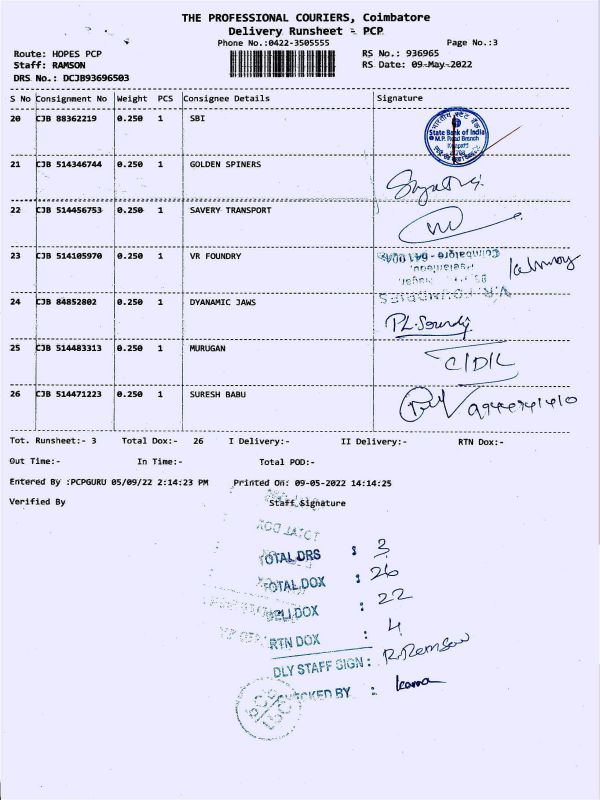 THE PROFESSIONAL COURIERS, Coimbatore
Delivery Runsheet - PCP
Phone No.:0422-3505555
Page No.:3
Route: HOPES PCP
RS No.: 936965
Staff: RAMSON
RS Date: 09-May-2022
DRS No.: DCJB93696503
S No Consignment No Weight PCS Consignee Details Signature
20 CJB 88362219 0.250 1 SBI
State Bank of India
21 CJB 514346744 0.250 1 GOLDEN SPINERS
22 CJB 514456753 0.250 1 SAVERY TRANSPORT
23 CJB 514105970 0.250 1 VR FOUNDRY
Coimbatore - 641 004
V.R.FOUNDRIES
24 CJB 84852802 0.250 1 DYANAMIC JAWS
25 CJB 514483313 0.250 1 MURUGAN
26 CJB 514471223 0.250 1 SURESH BABU
Tot. Runsheet:- 3 Total Dox:- 26 I Delivery:- II Delivery:- RTN Dox:-
Out Time:- In Time:- Total POD:-
Entered By :PCPGURU 05/09/22 2:14:23 PM Printed On: 09-05-2022 14:14:25
Verified By Staff Signature
TOTAL DOX
TOTAL DRS : 3
TOTAL DOX : 26
DELI DOX : 22
RTN DOX : 4
DLY STAFF SIGN : R.Ramson
CHECKED BY :